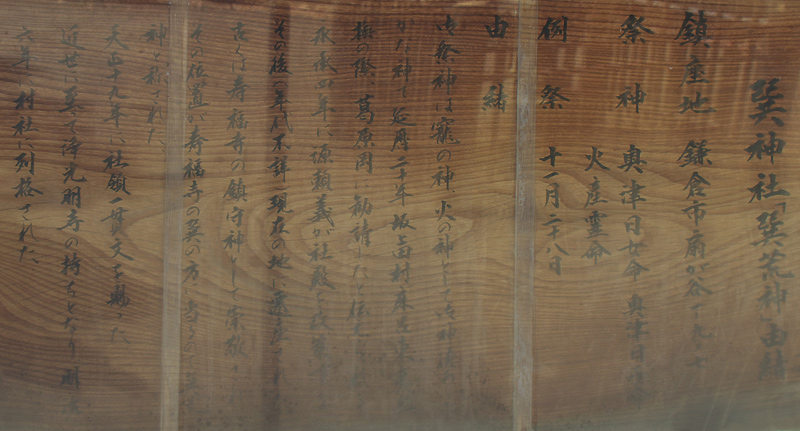 巽神社「巽荒神」由緒
鎮座地 鎌倉市扇が谷一丁九ー七
祭神 奥津日女命 奥津日
火産霊命
例祭 十一月二十八日
由緒
御祭神は竈の神、火の神として御神徳
かな神で延暦二十年坂上田村麻呂東
葛原岡に勧請したと伝え
永承四年に源頼義が社殿を改築
その後(年代不詳)現在の地に
古くは寿福寺の鎮守神として崇敬
その位置が寿福寺の巽の方
神と称された。
天正十九年に社領一貫文を賜った
近世に至って浄光明寺の持ちとなり明治
六年、村社に列格された。